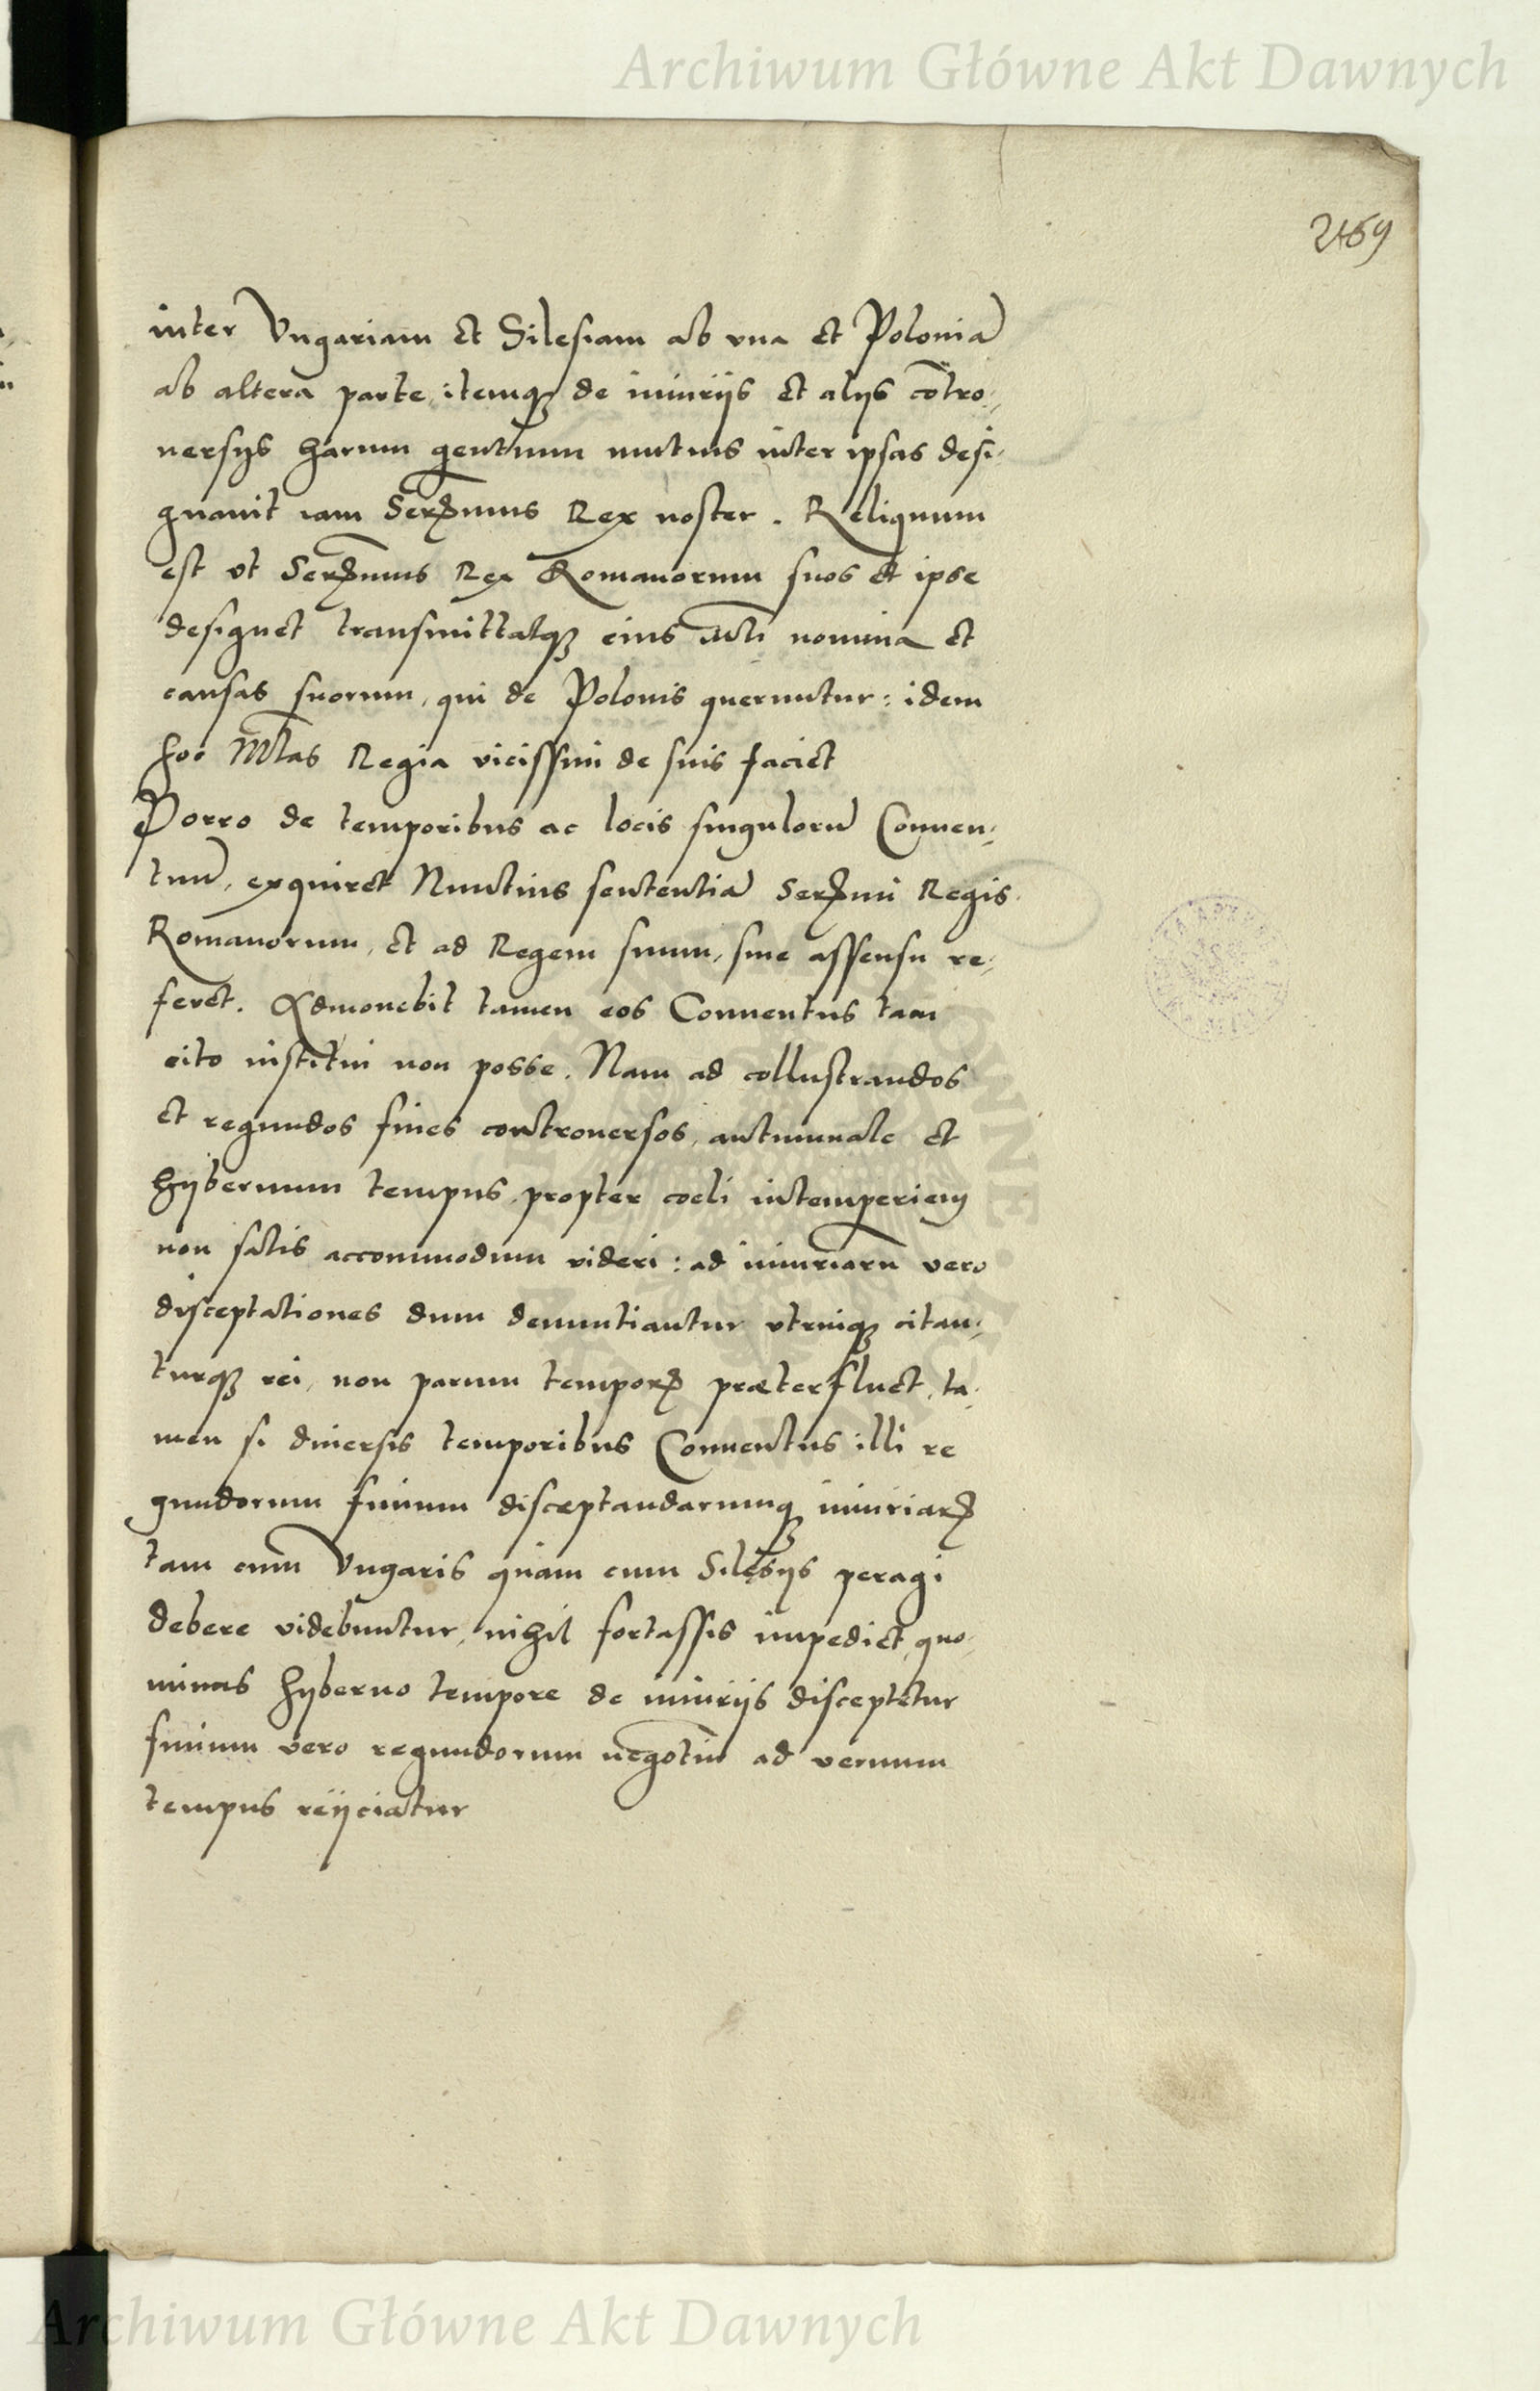 Archiwum Główne Akt Dawnych
2169
inter Vngariam et Silesiam ab vna et Poloniā
ab altera parte, itemq₃ de iniurijs et alijs cōtro-
uersijs harum gentium mutuis inter ipsas desi-
gnauit iam Serꝫmus Rex noster. Reliquum
est vt Serꝫmus Rex Romanorum suos et ipse
designet transmittatq₃ eius Mti nomina et
causas suorum, qui de Polonis queruntur: idem
hoc Mtas Regia vicissim de suis faciet
Porro de temporibus ac locis singulorū Conuen-
tuū, exquiret Nuntius sententiā Serꝫmi Regis
Romanorum, et ad Regem suum, sine assensu re-
feret. Admonebit tamen eos Conuentus tam
cito institui non posse. Nam ad collustrandos
et regundos fines controuersos, autumnale et
hybernum tempus propter coeli intemperiem
non satis accommodum videri: ad iniuriarū vero
disceptationes dum denuntiantur vtrinq₃ citan-
turq₃ rei, non parum temporꝫ præterfluet, ta-
men si diuersis temporibus Conuentus illi re
gundorum finium disceptandarumq₃ iniuriarꝫ
tam cum Vngaris quam cum Silesijs peragi
debere videbuntur, nihil fortassis impediet, quo-
minus hyberno tempore de iniurijs disceptetur
finium vero regundorum negotiū ad vernum
tempus reijciatur
Archiwum Główne Akt Dawnych